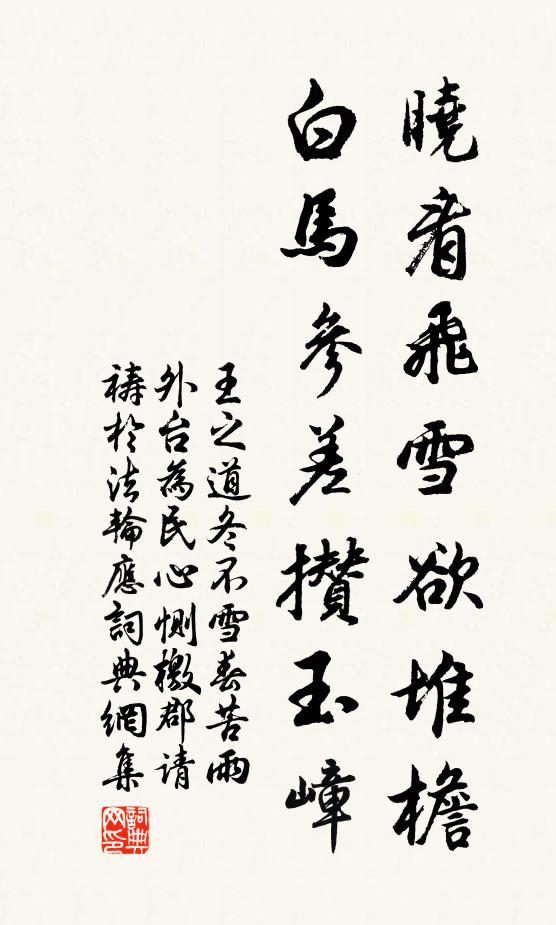 曉看飛雪欲堆檐
白馬參差攢玉嶂
王之道冬不雪春苦雨
外台為民心惻檄郡请
祷於法輪應詞典網集
詞典网印